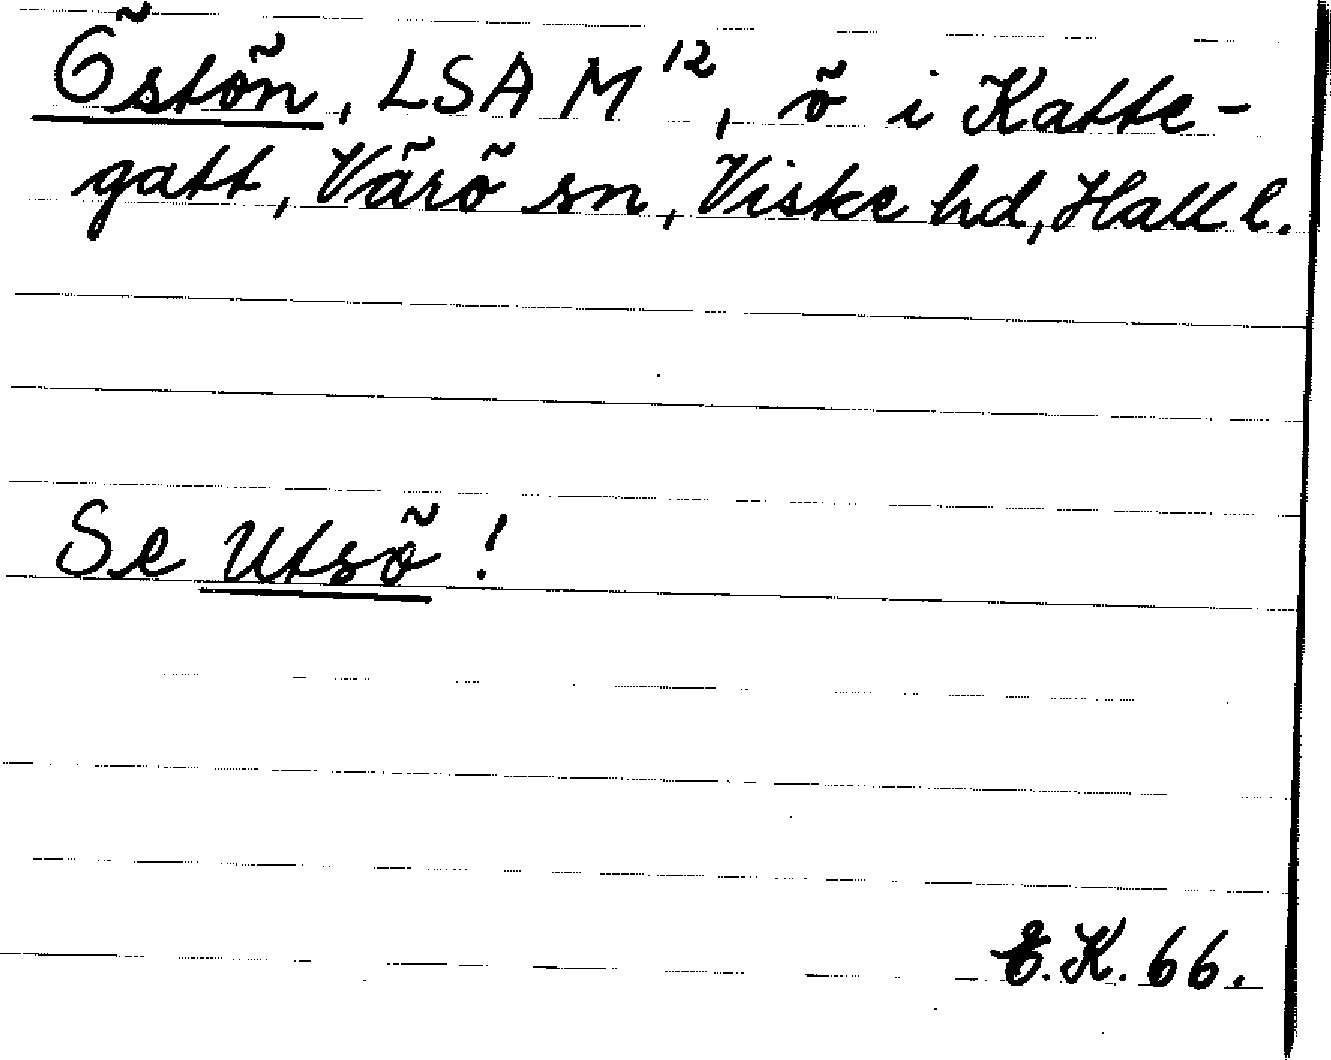 Östön, LSA M¹², ö i Katte-
gatt, Värö sn, Viske hd, Hall l.
Se Utsö!
E.K. 66.